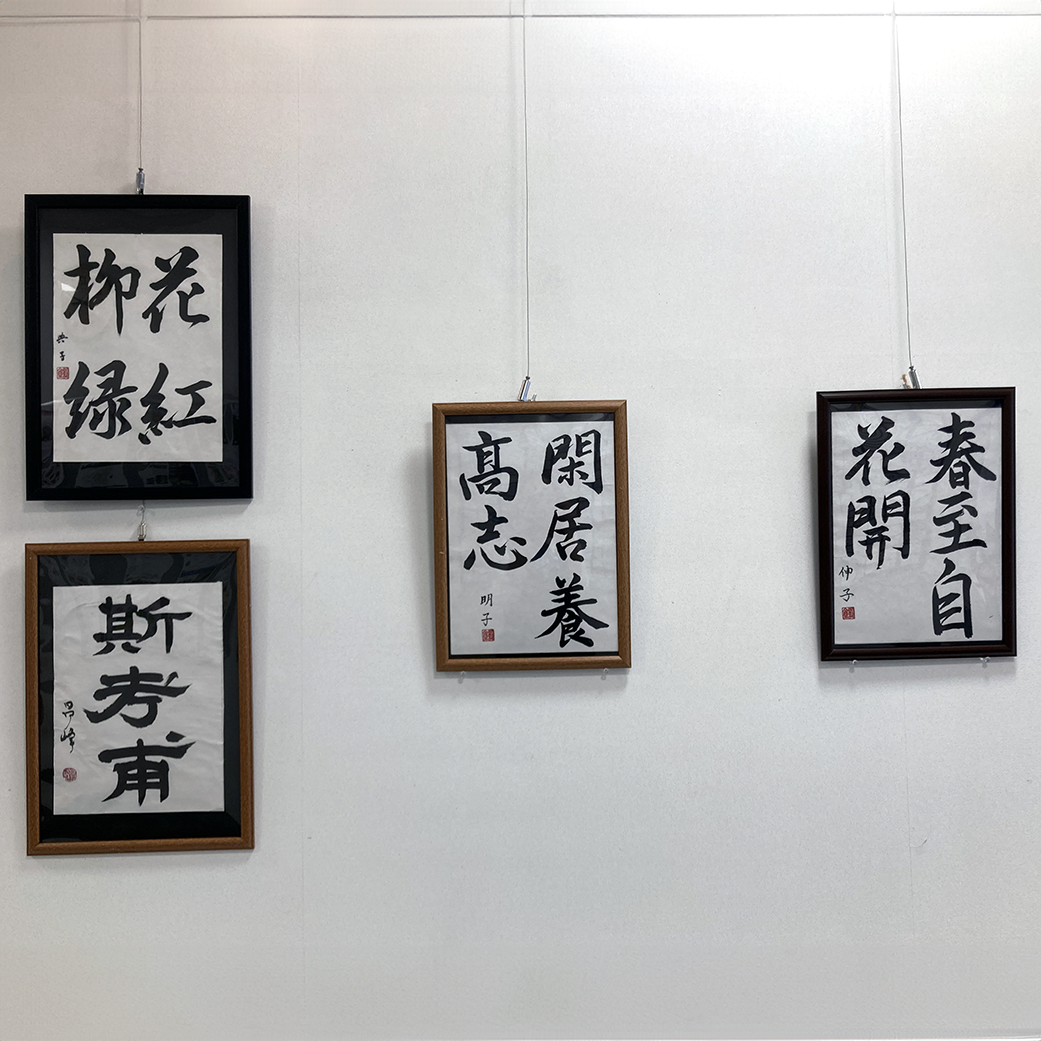 花紅
柳緑
典子
斯考甫
昌峰
閑居養
高志
明子
春至自
花開
仲子